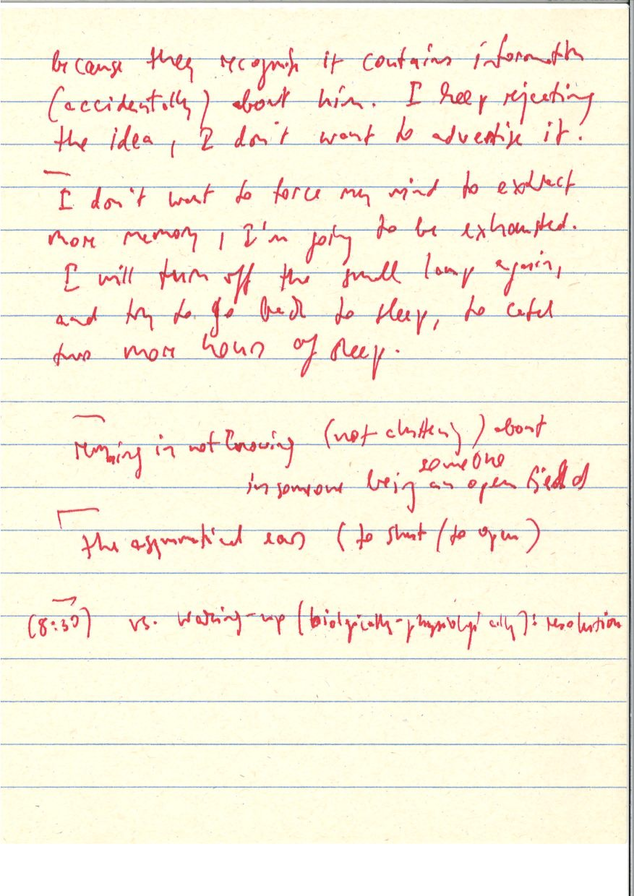 because they recognise it contains information
(accidentally) about him. I keep rejecting
the idea, I don't want to advertise it.
I don't want to force my mind to extract
more memory, I'm going to be exhausted.
I will turn off the small lamp again,
and try to go back to sleep, to catch
two more hours of sleep.
in not knowing (not clustering) about
someone
in someone being an open field
the asymmetrical ears (to shut/to open)
(8:30) vs. waking-up (biologically-physiologically): resolution